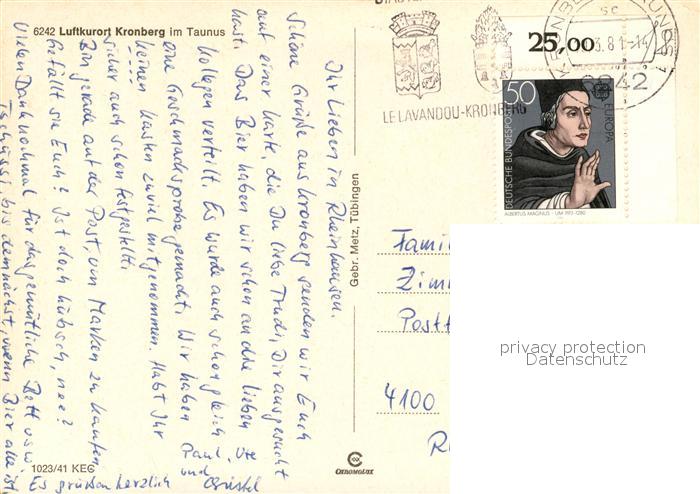 6242 Luftkurort Kronberg im Taunus
Ihr Lieben in Rheinhausen.
Schöne Grüße aus Kronberg senden wir Euch
auf einer Karte, die Du liebe Trudi, Dir ausgesucht
hast. Das Bier haben wir schon an die lieben
Kollegen verteilt. Es wurde auch schon gleich
eine Geschmacksprobe gemacht. Wir haben
keinen Kasten zuviel mitgenommen. Habt Ihr
sicher auch schon festgestellt.
Bin gerade auf der Post um Marken zu kaufen
Gefällt sie Euch? Ist doch hübsch, nee?
Vielen Dank nochmal für das gemütliche Bett usw.
Tschüssi, bis demnächst, wenn Bier alle ist.
Es grüßen herzlich
Paul, Ute
und
1023/41 KEC
Gebr. Metz, Tübingen
CHROMOLUX
LE LAVANDOU-KRONBERG
25,00
3.81-14
6242
50
DEUTSCHE BUNDESPOST
EUROPA
ALBERTUS MAGNUS · UM 1193-1280
Famil
Zim
Postf
4100
R
privacy protection
Datenschutz